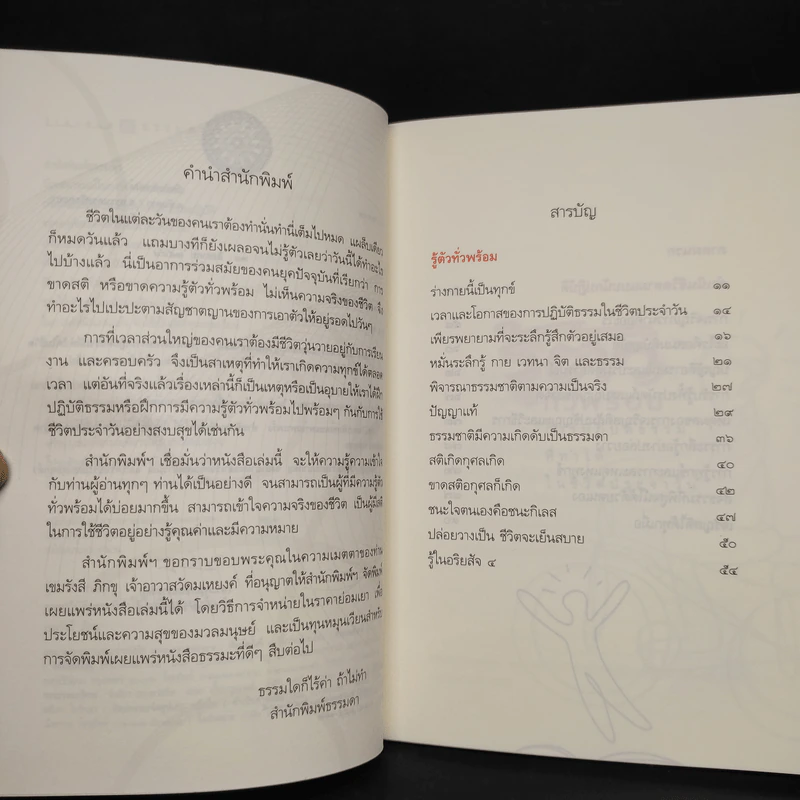 คำนำสำนักพิมพ์
ชีวิตในแต่ละวันของคนเราต้องทำนั่นทำนี่เต็มไปหมด แผล็บเดียว
ก็หมดวันแล้ว แถมบางทีก็ยังเผลอจนไม่รู้ตัวเลยว่าวันนี้ได้ทำอะไร
ไปบ้างแล้ว นี่เป็นอาการร่วมสมัยของคนยุคปัจจุบันที่เรียกว่า การ
ขาดสติ หรือขาดความรู้ตัวทั่วพร้อม ไม่เห็นความจริงของชีวิต จึง
ทำอะไรไปเปะปะตามสัญชาตญานของการเอาตัวให้อยู่รอดไปวันๆ
การที่เวลาส่วนใหญ่ของคนเราต้องมีชีวิตวุ่นวายอยู่กับการเรียน
งาน และครอบครัว จึงเป็นสาเหตุที่ทำให้เราเกิดความทุกข์ได้ตลอด
เวลา แต่อันที่จริงแล้วเรื่องเหล่านี้ก็เป็นเหตุหรือเป็นอุบายให้เราได้ฝึก
ปฏิบัติธรรมหรือฝึกการมีความรู้ตัวทั่วพร้อมไปพร้อมๆ กันกับการใช้
ชีวิตประจำวันอย่างสงบสุขได้เช่นกัน
สำนักพิมพ์ฯ เชื่อมั่นว่าหนังสือเล่มนี้ จะให้ความรู้ความเข้าใจ
กับท่านผู้อ่านทุกๆ ท่านได้เป็นอย่างดี จนสามารถเป็นผู้ที่มีความรู้ตัว
ทั่วพร้อมได้บ่อยมากขึ้น สามารถเข้าใจความจริงของชีวิต เป็นผู้มีสติ
ในการใช้ชีวิตอยู่อย่างรู้คุณค่าและมีความหมาย
สำนักพิมพ์ฯ ขอกราบขอบพระคุณในความเมตตาของท่าน
เขมรังสี ภิกขุ เจ้าอาวาสวัดมเหยงค์ ที่อนุญาตให้สำนักพิมพ์ฯ จัดพิมพ์
เผยแพร่หนังสือเล่มนี้ได้ โดยวิธีการจำหน่ายในราคาย่อมเยา เพื่อ
ประโยชน์และความสุขของมวลมนุษย์ และเป็นทุนหมุนเวียนสำหรับ
การจัดพิมพ์เผยแพร่หนังสือธรรมะที่ดีๆ สืบต่อไป
ธรรมใดก็ไร้ค่า ถ้าไม่ทำ
สำนักพิมพ์ธรรมดา
สารบัญ
รู้ตัวทั่วพร้อม
ร่างกายนี้เป็นทุกข์ ๑๑
เวลาและโอกาสของการปฏิบัติธรรมในชีวิตประจำวัน ๑๔
เพียรพยายามที่จะระลึกรู้สึกตัวอยู่เสมอ ๑๖
หมั่นระลึกรู้ กาย เวทนา จิต และธรรม ๒๑
พิจารณาธรรมชาติตามความเป็นจริง ๒๗
ปัญญาแท้ ๒๙
ธรรมชาติมีความเกิดดับเป็นธรรมดา ๓๖
สติเกิดกุศลเกิด ๔๐
ขาดสติอกุศลก็เกิด ๔๒
ชนะใจตนเองคือชนะกิเลส ๔๗
ปล่อยวางเป็น ชีวิตจะเย็นสบาย ๕๐
รู้ในอริยสัจ ๔ ๕๔